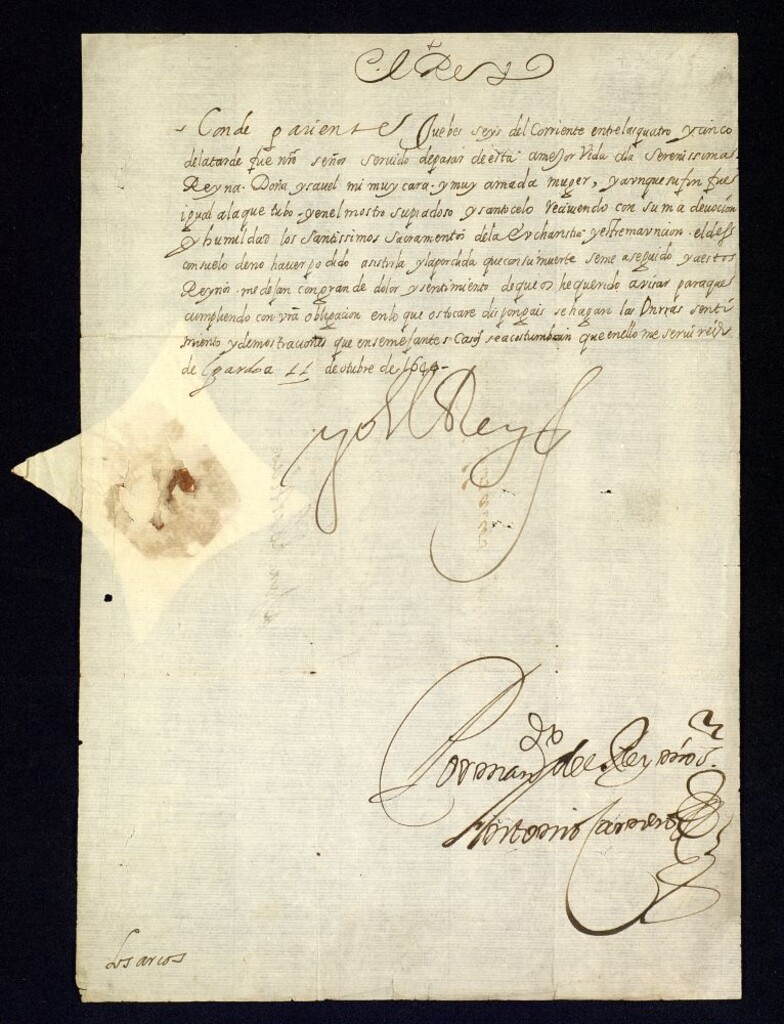 El Rey
Conde pariente Juebes seys del Corriente entre las quatro y cinco
de la tarde fue nro señor servido de pasar de esta a mejor Vida a la Serenissima
Reyna Doña ysavel mi muy cara y muy amada muger, y aunque su fin fue
igual a la que tubo y en el mostro su piadoso y santo celo reciviendo con suma devocion
y humildad los Santissimos Sacramentos de la Eucharistia y estremauncion el des
consuelo de no haver podido asistirla y la perdida que con su muerte se me a seguido y a estos
Reynos me dejan con grande dolor y sentimiento de que os he querido avisar para que
cumpliendo con vra obligacion en lo que os tocare dispongais se hagan las Onrras senti
miento y demostraciones que en semejantes Casos se acostumbran que en ello me servireis
de l pardo a 11 de otubre de 1644
yo el Rey
Por mando de el Rey nro s.
Antonio Carnero
Los arcos